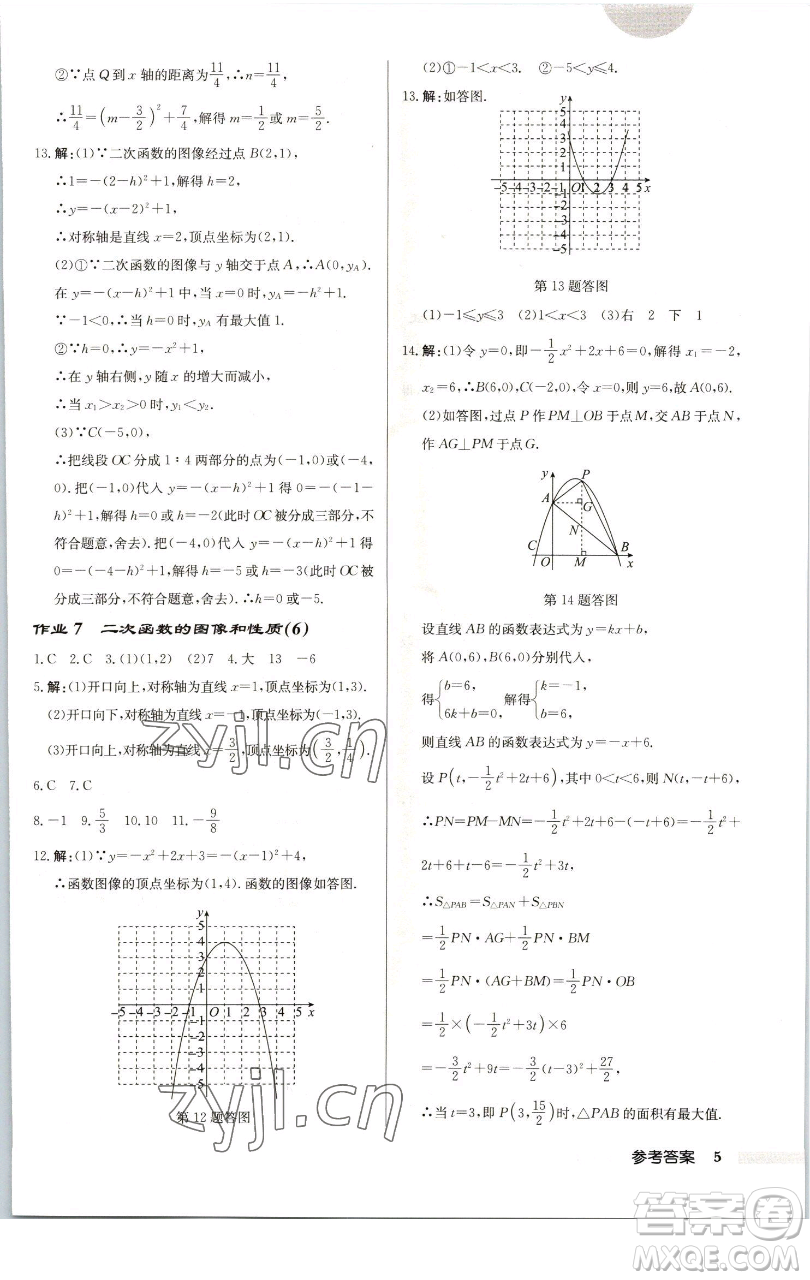 ②∵点 Q 到 x 轴的距离为11/4,∴n=11/4,
∴11/4=(m-3/2)²+7/4,解得 m=1/2或 m=5/2.
13.解:(1)∵二次函数的图像经过点 B(2,1),
∴1=-(2-h)²+1,解得 h=2,
∴y=-(x-2)²+1,
∴对称轴是直线 x=2,顶点坐标为(2,1).
(2)①∵二次函数的图像与 y 轴交于点 A,∴A(0,yA).
在 y=-(x-h)²+1中,当 x=0时,yA=-h²+1.
∵-1<0,∴当 h=0时,yA 有最大值 1.
②∵h=0,∴y=-x²+1,
∴在 y 轴右侧,y随 x 的增大而减小.
∴当 x₁>x₂>0 时,y₁<y₂.
(3)∵C(-5,0),
∴把线段 OC 分成 1∶4 两部分的点为(-1,0)或(-4,
0).把(-1,0)代入 y=-(x-h)²+1 得 0=-(-1-
h)²+1,解得 h=0或 h=-2(此时 OC 被分成三部分,不
符合题意,舍去).把(-4,0)代入 y=-(x-h)²+1 得
0=-(-4-h)²+1,解得 h=-5 或 h=-3(此时 OC 被
分成三部分,不符合题意,舍去).∴h=0或-5.
作业 7 二次函数的图像和性质(6)
1.C 2.C 3.(1)(1,2) (2)7 4.大 13 -6
5.解:(1)开口向上,对称轴为直线 x=1,顶点坐标为(1,3).
(2)开口向下,对称轴为直线 x=-1,顶点坐标为(-1,3).
(3)开口向上,对称轴为直线 x=3/2,顶点坐标为(3/2,1/4).
6.C 7.C
8.-1 9.5/3 10.10 11.-9/8
12.解:(1)∵y=-x²+2x+3=-(x-1)²+4,
∴函数图像的顶点坐标为(1,4).函数的图像如答图.
y
5
4
3
2
1
-5-4-3-2-1 O 1 2 3 4 5 x
-1
-2
-3
-4
-5
第 12 题答图
(2)①-1<x<3. ②-5<y≤4.
13.解:如答图.
y
5
4
3
2
1
-5-4-3-2-1 O 1 2 3 4 5 x
-1
-2
-3
-4
-5
第 13 题答图
(1)-1≤y≤3 (2)1<x<3 (3)右 2 下 1
14.解:(1)令 y=0,即-1/2x²+2x+6=0,解得 x₁=-2,
x₂=6,∴B(6,0),C(-2,0),令 x=0,则 y=6,故 A(0,6).
(2)如答图,过点 P 作 PM⊥OB 于点 M,交 AB 于点 N,
作 AG⊥PM 于点 G.
y P
A G
N
C O M B x
第 14 题答图
设直线 AB 的函数表达式为 y=kx+b,
将 A(0,6),B(6,0)分别代入,
得{b=6, 6k+b=0, 解得{k=-1, b=6,
则直线 AB 的函数表达式为 y=-x+6.
设 P(t,-1/2t²+2t+6),其中 0<t<6,则 N(t,-t+6),
∴PN=PM-MN=-1/2t²+2t+6-(-t+6)=-1/2t²+
2t+6+t-6=-1/2t²+3t,
∴S△PAB=S△PAN+S△PBN
=1/2PN·AG+1/2PN·BM
=1/2PN·(AG+BM)=1/2PN·OB
=1/2×(-1/2t²+3t)×6
=-3/2t²+9t=-3/2(t-3)²+27/2,
∴当 t=3,即 P(3,15/2)时,△PAB 的面积有最大值.
参考答案 5
zyjl.cn
zyjl.cn
答案卷
MXQE.COM